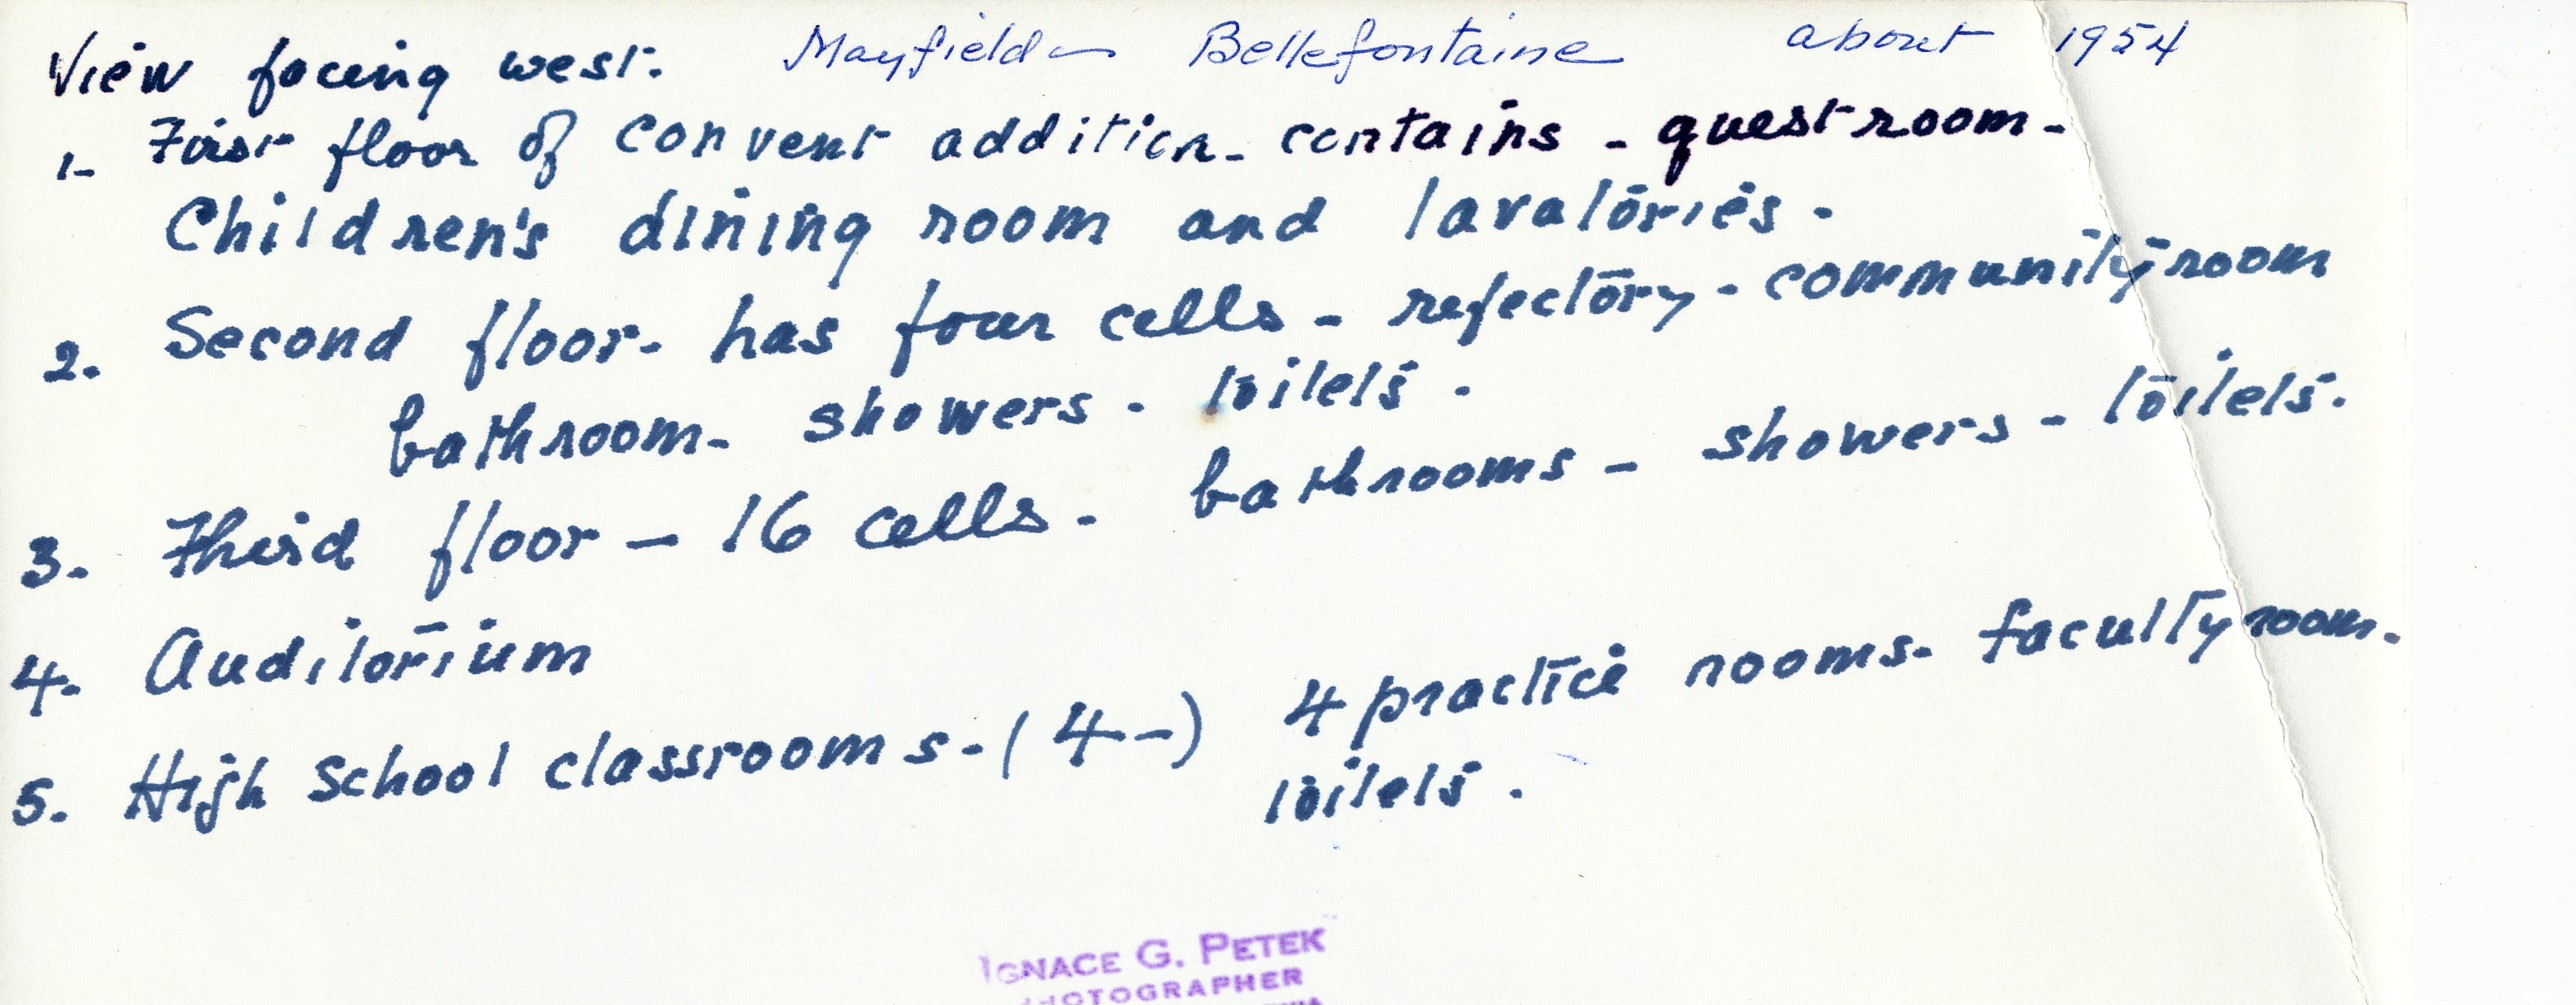 View facing west. Mayfield - Bellefontaine about 1954
1- First floor of convent addition - contains - guestroom -
Children's dining room and lavatories -
2. Second floor - has four cells - refectory - community room
bathroom - showers - toilets -
3. Third floor - 16 cells - bathrooms - showers - toilets.
4. Auditorium
5. High School classrooms - (4-) 4 practice rooms - faculty room -
toilets .
IGNACE G. PETEK
PHOTOGRAPHER